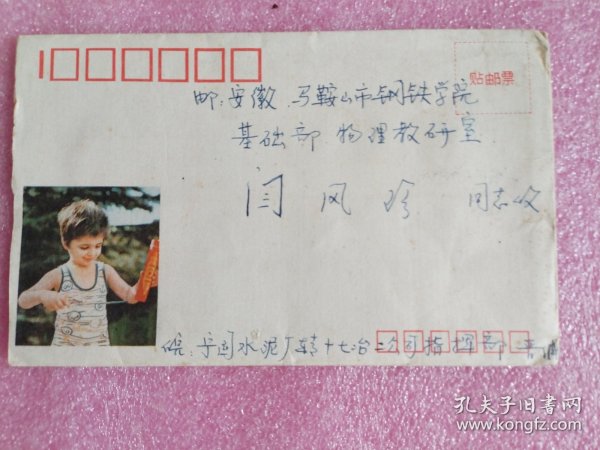 贴邮票
邮：安徽 马鞍山市钢铁学院
基础部 物理教研室
闫 风 珍 同志收
皖：宁国水泥厂转十七冶二公司指挥部
孔夫子旧书网
www.kongfz.com